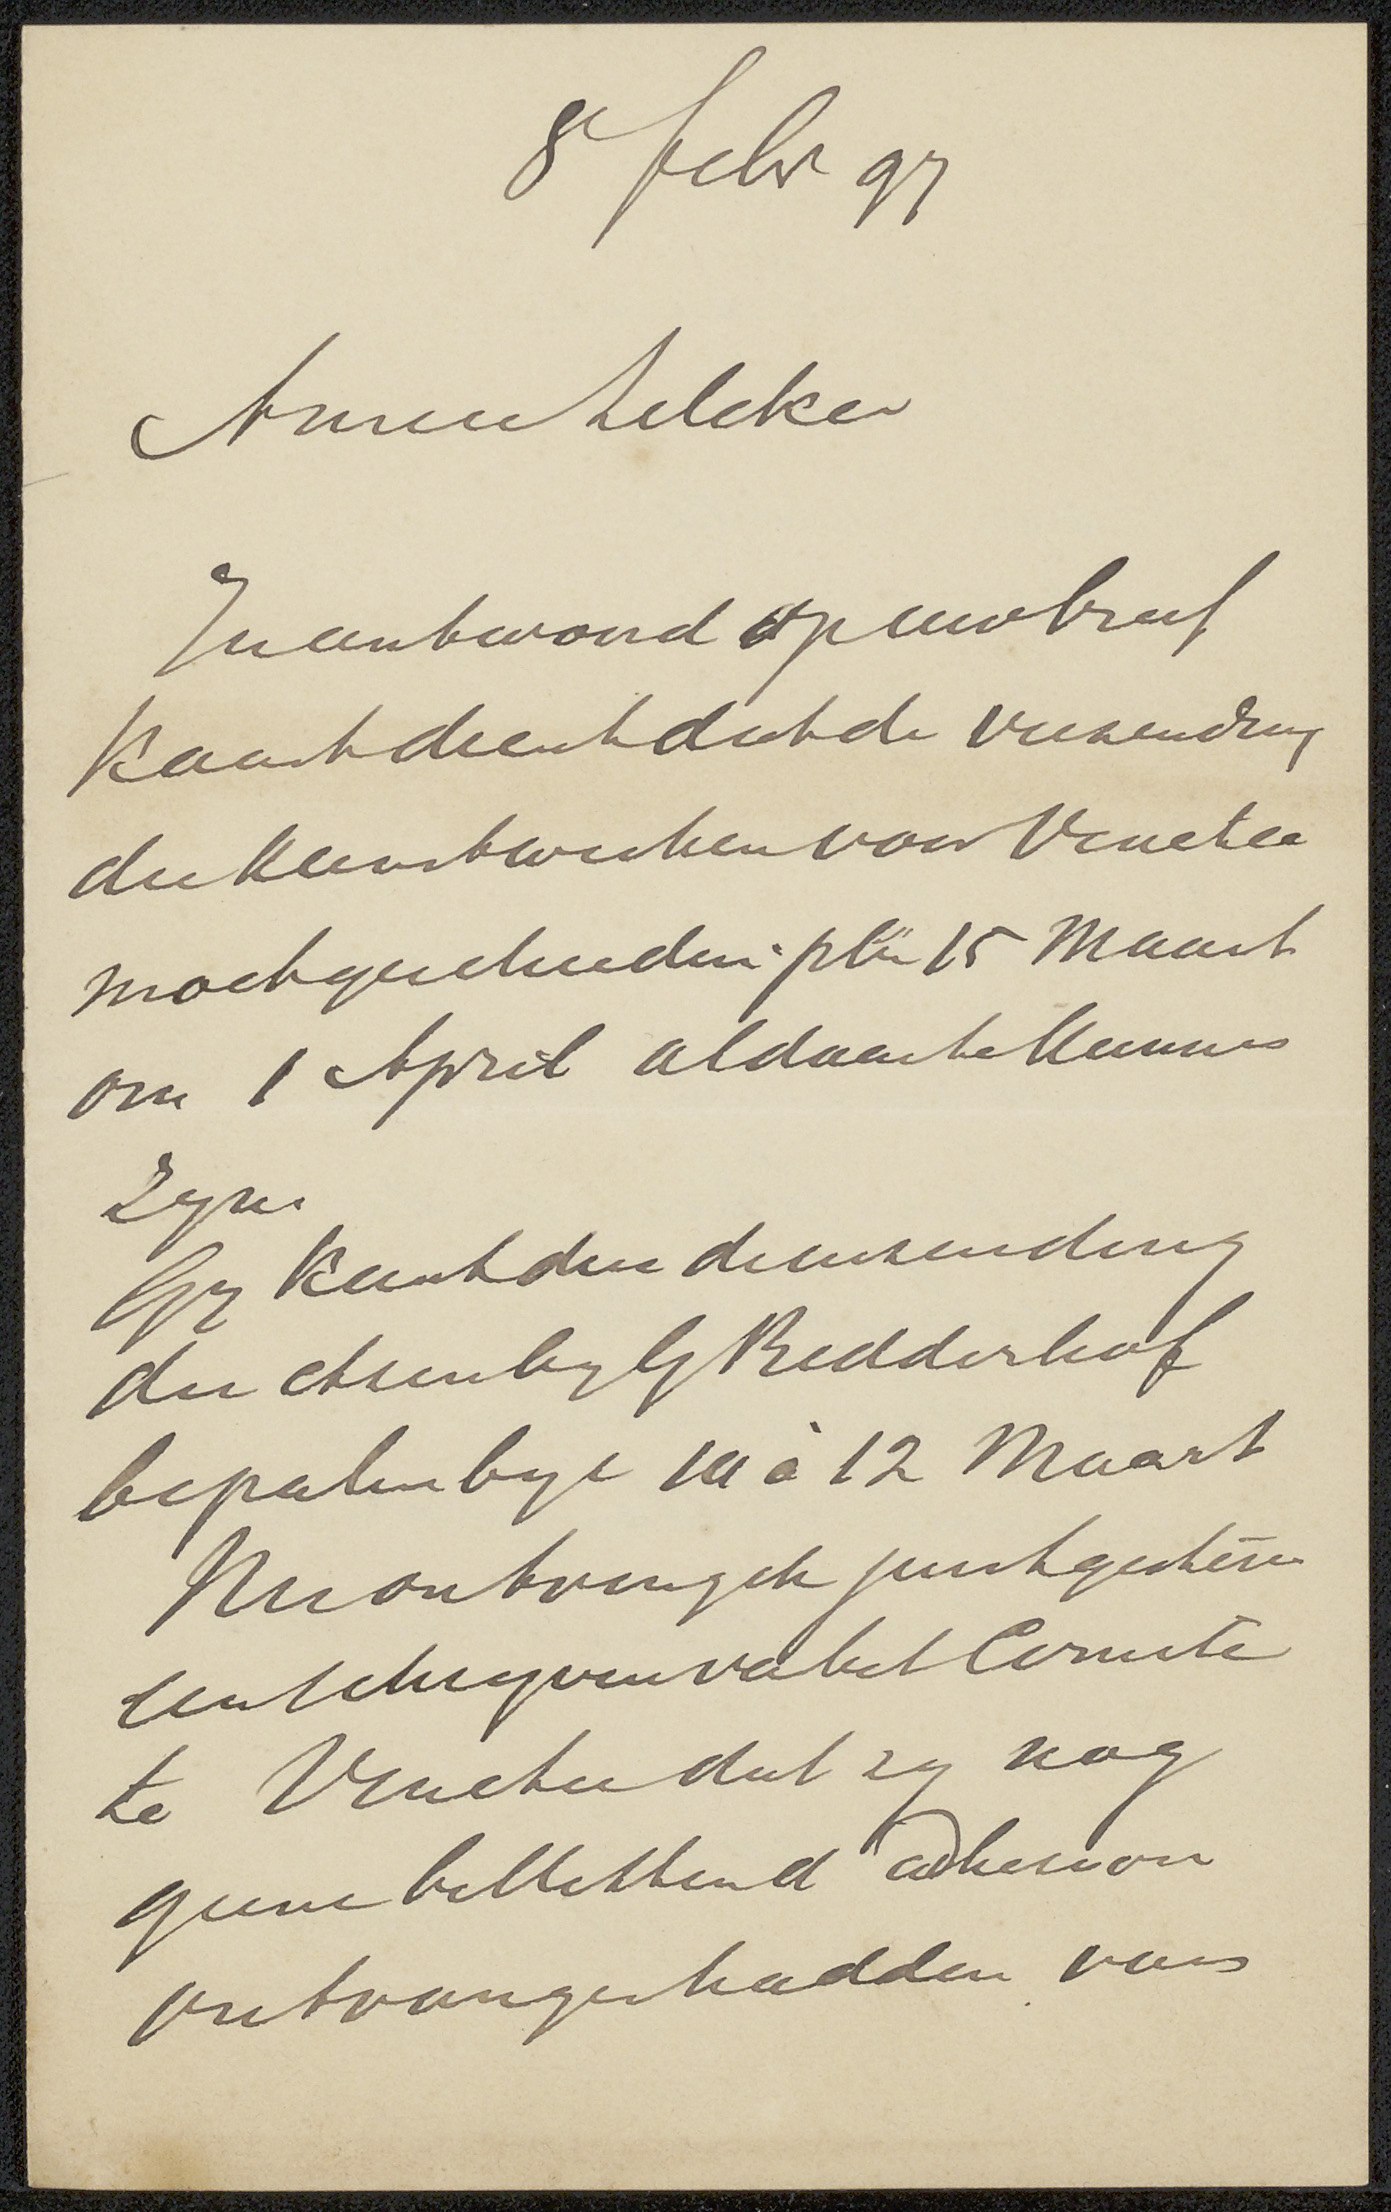 8 Febr 97
Amice Zilcken
In antwoord op uw brief
kaart dient dat de verzending
der kunstwerken voor Venetie
moet geschieden plm 15 Maart
om 1 April aldaar te kunnen
zyn.
Gy kunt dus de inzending
der etsen by G Ridderhof
bepalen bye 10 à 12 Maart
Nu ontving ik juist gisteren
een schryven va het Comite
te Venetie dat zy nog
geene billetten d'adhesion
ontvangen hadden van